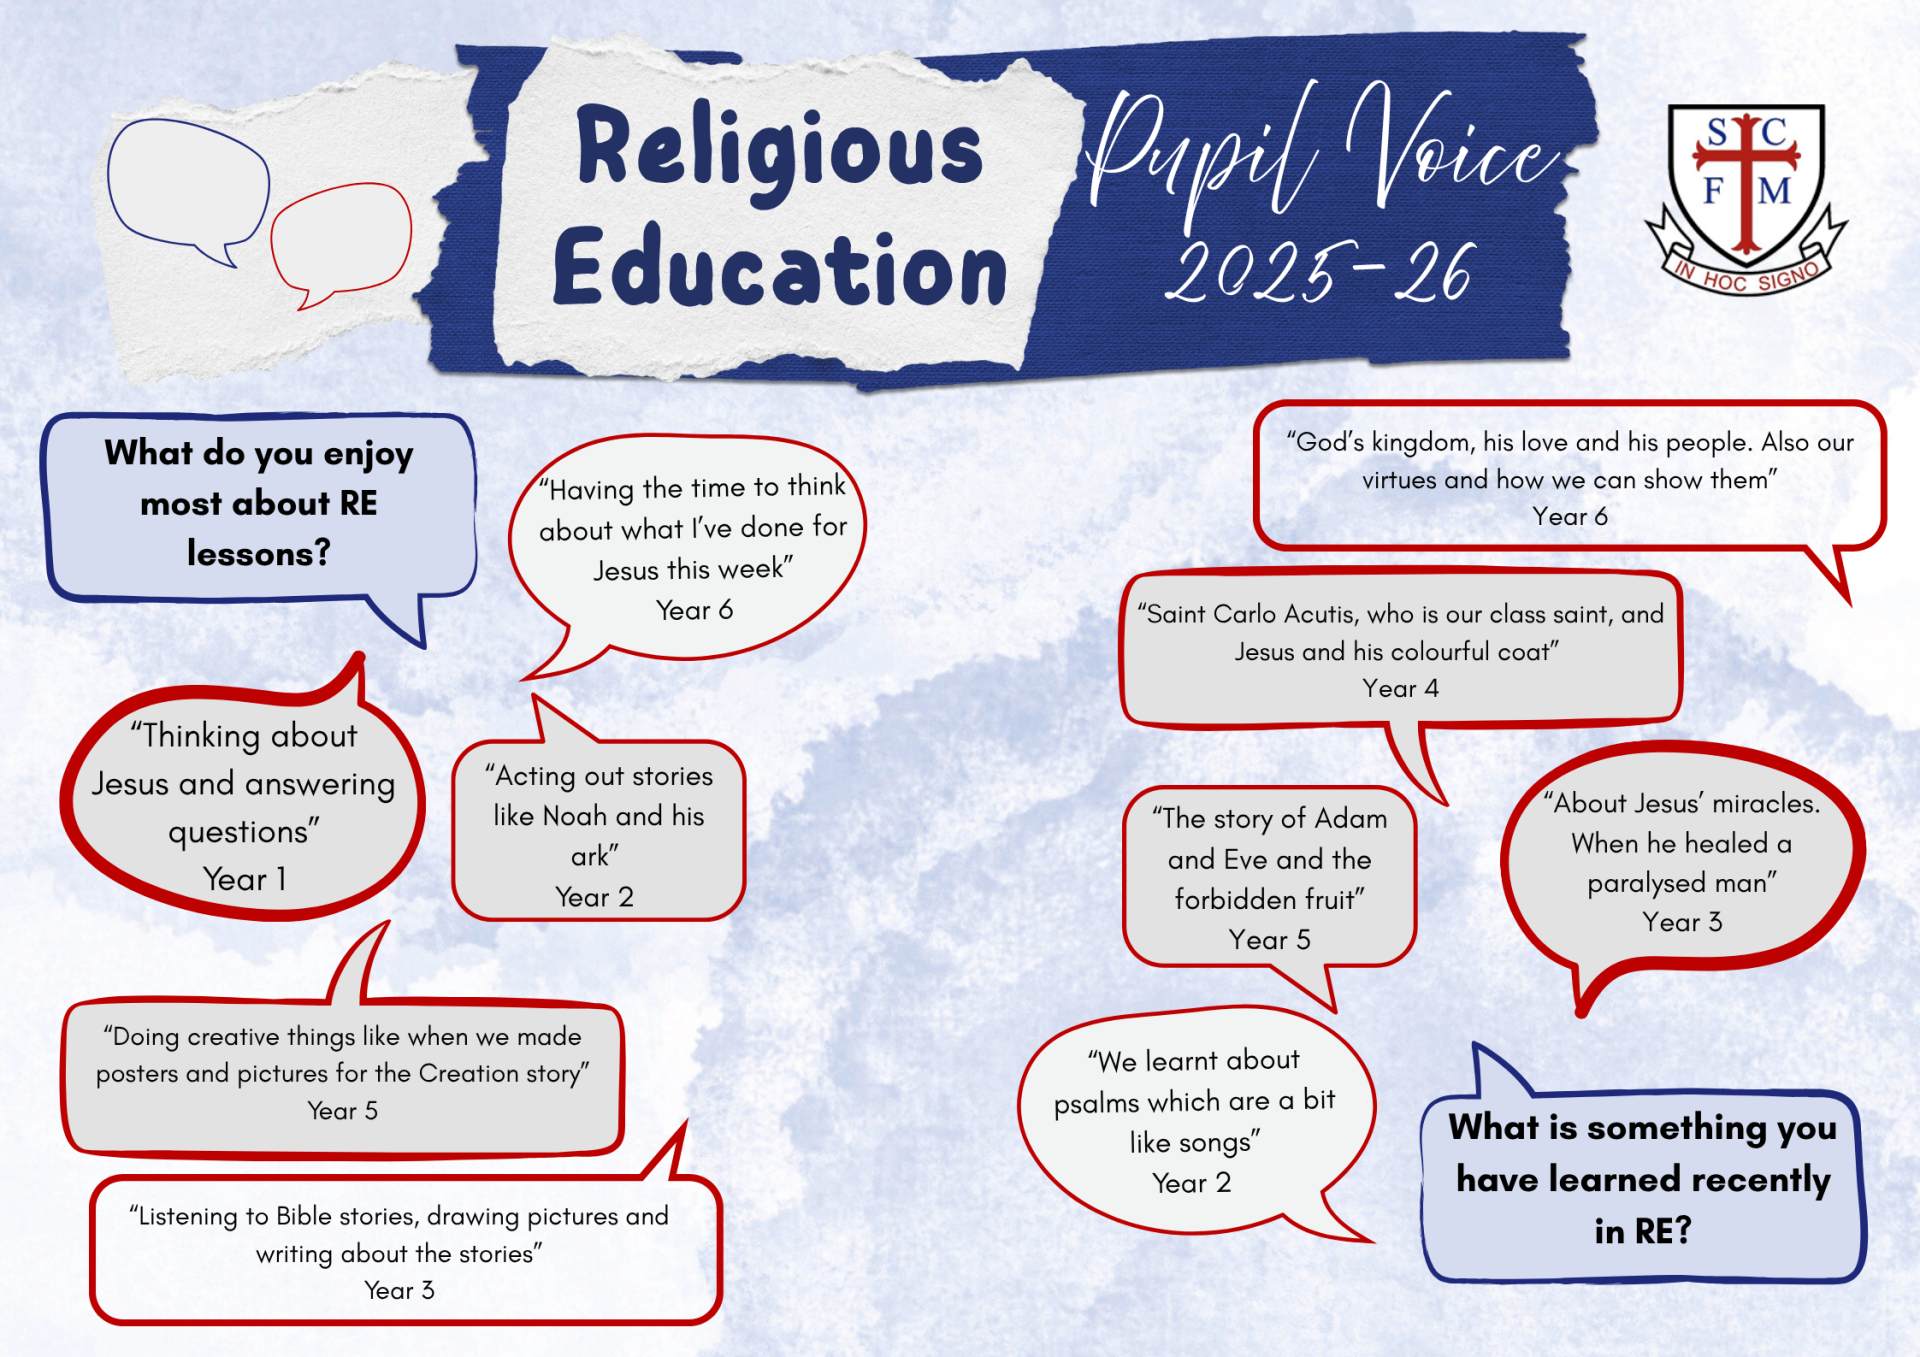 Religious
Education
Pupil Voice
2025-26
S C
F M
IN HOC SIGNO
What do you enjoy
most about RE
lessons?
“Having the time to think
about what I’ve done for
Jesus this week”
Year 6
“Thinking about
Jesus and answering
questions”
Year 1
“Acting out stories
like Noah and his
ark”
Year 2
“Doing creative things like when we made
posters and pictures for the Creation story”
Year 5
“Listening to Bible stories, drawing pictures and
writing about the stories”
Year 3
“God’s kingdom, his love and his people. Also our
virtues and how we can show them”
Year 6
“Saint Carlo Acutis, who is our class saint, and
Jesus and his colourful coat”
Year 4
“The story of Adam
and Eve and the
forbidden fruit”
Year 5
“About Jesus’ miracles.
When he healed a
paralysed man”
Year 3
“We learnt about
psalms which are a bit
like songs”
Year 2
What is something you
have learned recently
in RE?